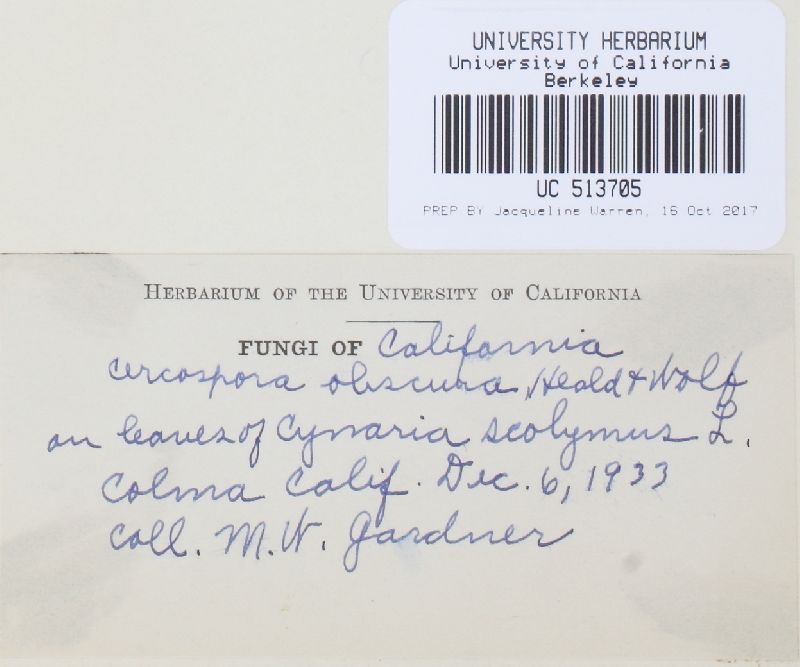 UNIVERSITY HERBARIUM
University of California
Berkeley
UC 513705
PREP BY Jacqueline Warren, 16 Oct 2017
HERBARIUM OF THE UNIVERSITY OF CALIFORNIA
FUNGI OF California
Cercospora obscura, Heald & Wolf
on leaves of Cynaria scolymus L.
Colma Calif. Dec. 6, 1933
Coll. M.W. Gardner